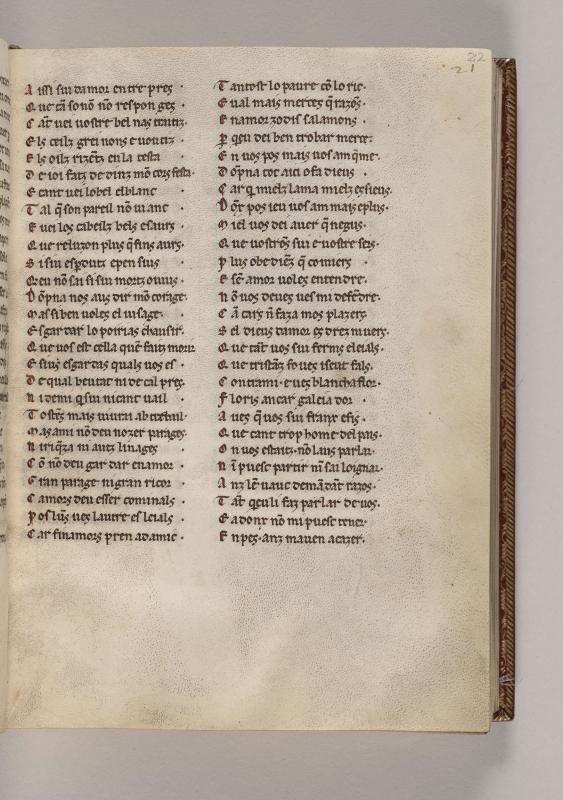 22
21
A issi sui damor entre pres ·
Q ue cā sonō nō respon ges ·
C āt vei vostre bel nas
E ls oeilz grei nons e
E ls oilz rizētz en la testa
D e ioi fatz de dinz mō cors festa
E cant vei lobel el blanc ·
T al q̄ son pareil nō vi anc ·
E vei los cabeilz bels e saurs ·
Q ue reluzon plus q̄ fins aurs ·
S i sui espdutz e pen sius ·
Q eu nō sai si sui mortz o vius ·
D ōpna nos aus dir mō corage ·
M as si ben voles el visage ·
E sgardar lo poirias chausir ·
Q ue vos est cella quē faitz morir
E sius esgardas quals vos es ·
D e qual beutat ni de cal pres ·
N i de mi q̄ sui ni cant vail ·
T ostēs mais viurai ab trebail ·
M as ami nō deu nozer parages ·
N i riq̄za ni autz linages ·
C ō nō deu gardar en amor ·
G ran parage ni gran ricor ·
C amors deu esser cominals ·
P os lūs ves lautre es leials ·
C ar fin amors pren ad amic ·
T antost lo paure cō lo ric ·
E val mais merces q̄ razōs ·
E n amor zo dis salamons ·
P qeu dei ben trobar merce ·
E n vos pos mais vos am q̄ me ·
D ōpna tot aici o fa dieus ·
C ar q̄ mielz lama mielz es sieus ·
D ōc pos ieu vos am mais e plus ·
M iel vos dei aver q̄ negus ·
Q ue vostrēs sui e vostre seis ·
P lus obediēz q̄ comiers ·
E sē amor voles entendre ·
N ō vos deves ves mi defēdre ·
C ā cars n̄ faza mos plazers ·
S el dieus damor es drez iuvers ·
Q ue tāt vos sui ferms e leials ·
Q ue tristātz fo ves iseut fals ·
C ontra mi · e ves blanchaflor ·
F loris ancar galeia dor ·
A ves q̄ vos sui francx e fis ·
Q ue cant trop home del pais ·
O n vos estaitz · nō laus parlar
N ī puesc partir nī sai loignar ·
A nz lē vauc demādāt razos ·
T āt qeu li faz parlar de vos ·
E adonx nō mi puesc tener ·
E n pes · anz mauen a cazer ·